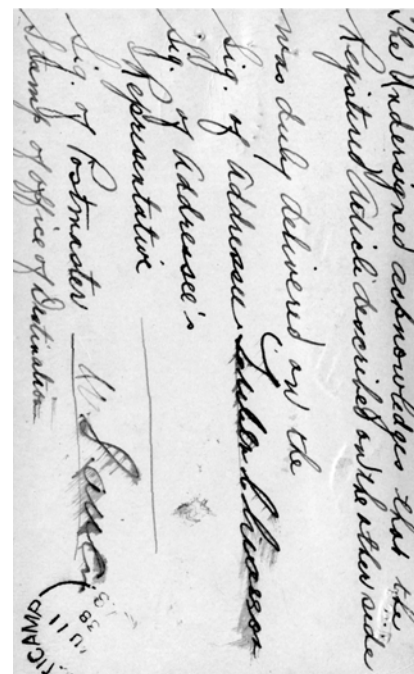 The Undersigned acknowledges that the
Registered Article described on the other side
was duly delivered on the
Sig. of Addressee
Sig. of Addressee's
Representative
Sig. of Postmaster W.
Stamp of office of Destination
JU 11
38